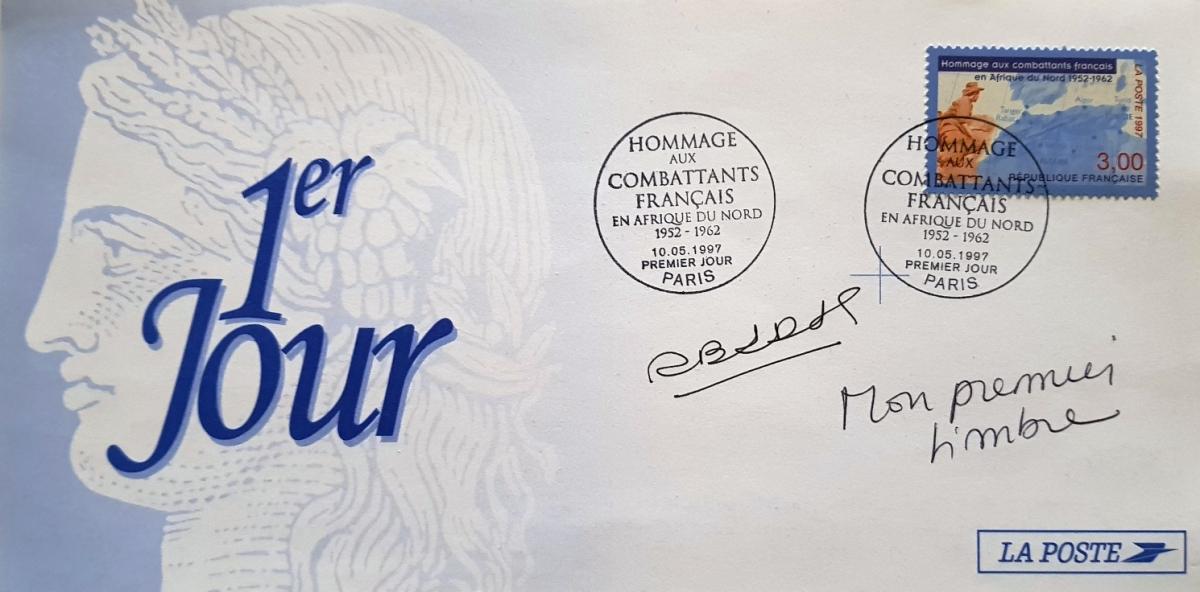 1er
Jour
HOMMAGE
AUX
COMBATTANTS
FRANÇAIS
EN AFRIQUE DU NORD
1952 - 1962
10.05.1997
PREMIER JOUR
PARIS
Hommage aux combattants français
en Afrique du Nord 1952-1962
LA POSTE 1997
Tanger
Rabat
Alger
Tunis
3,00
RÉPUBLIQUE FRANÇAISE
HOMMAGE
AUX
COMBATTANTS
FRANÇAIS
EN AFRIQUE DU NORD
1952 - 1962
10.05.1997
PREMIER JOUR
PARIS
Mon premier
timbre
LA POSTE